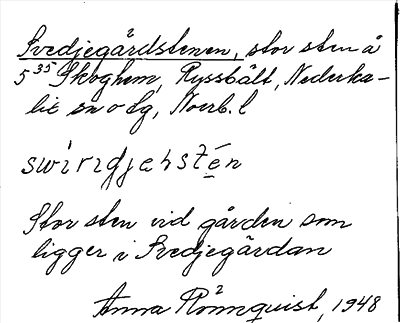 Svedjegårdstenen, stor sten å
5 35 Skoghem, Ryssbält, Nederka-
lix sn o lg, Norrb. l
Stor sten vid gården som
ligger i Svedjegärdan
Anna Rönnquist, 1948